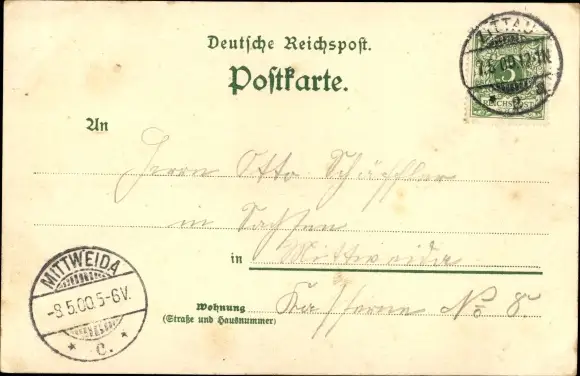 Deutsche Reichspost.
Postkarte.
ZITTAU
7.5.00.12-1N
* 2 a
5
REICHSPOST
An
Herrn Otto Schäffler
in Sachsen
in Mittweida
MITTWEIDA
-8.5.00.5-6V.
* c. *
Wohnung
(Straße und Hausnummer)
No 8.